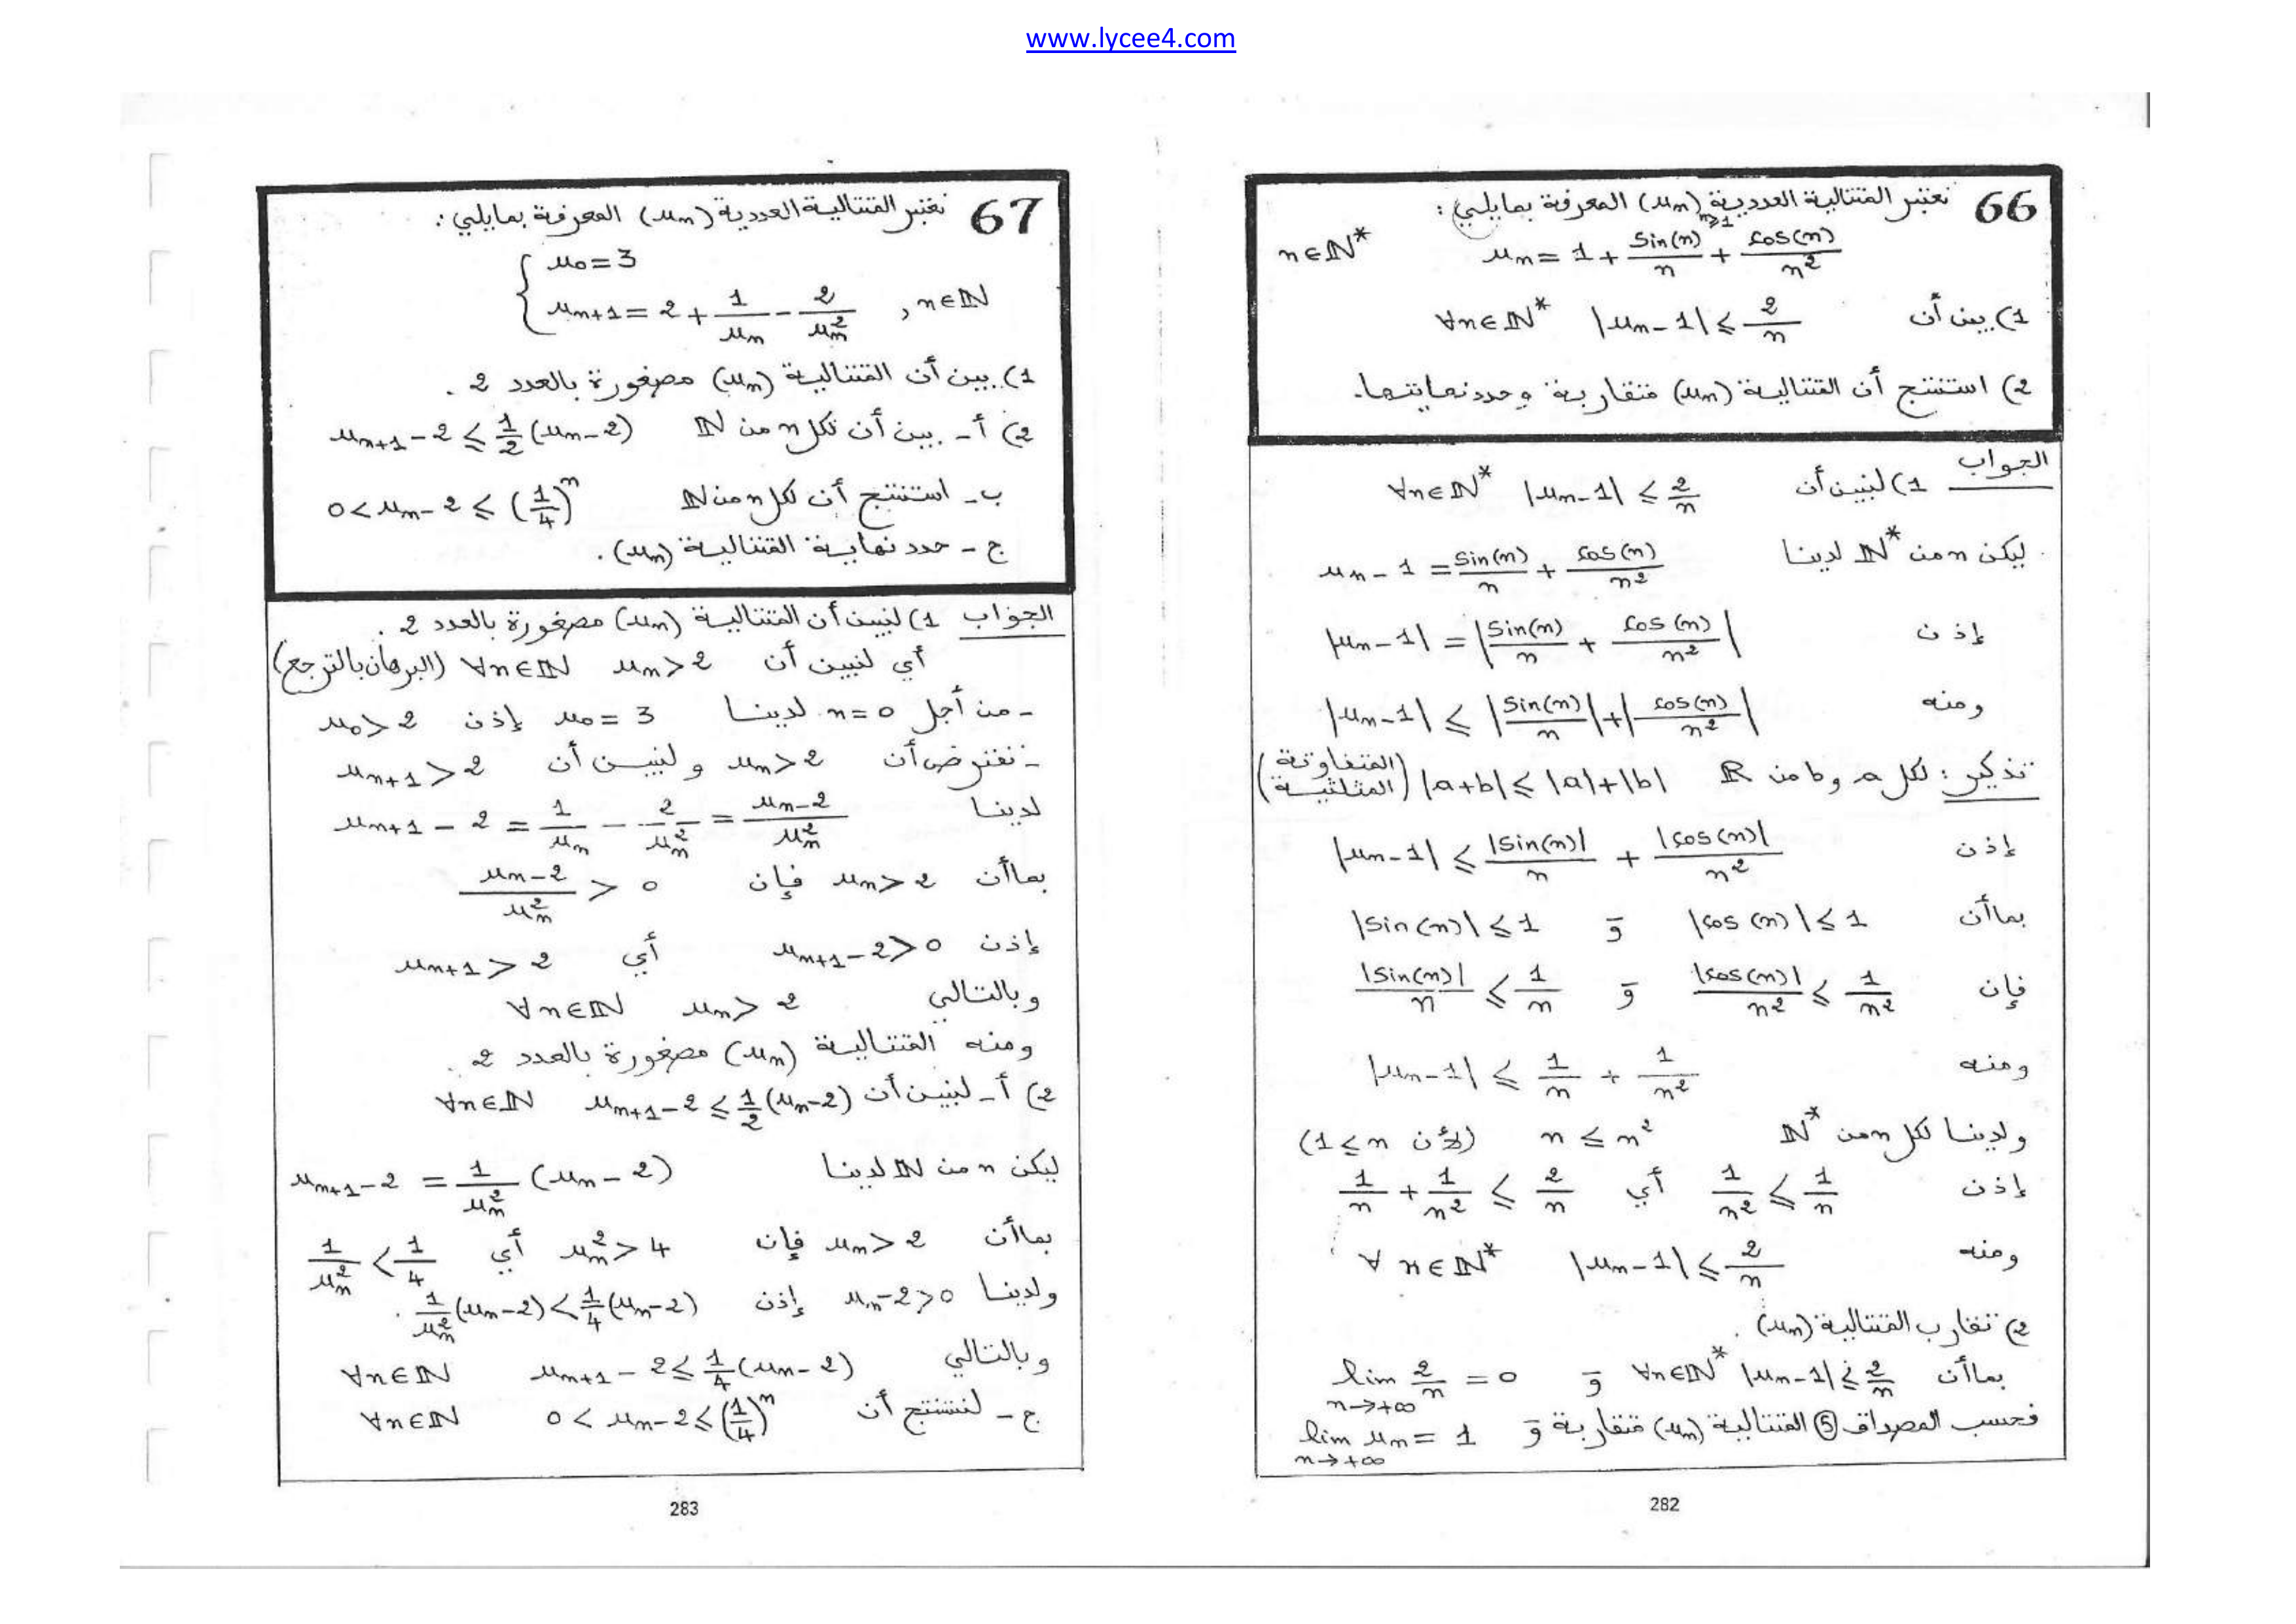 www.lycee4.com
66 نعتبر المتتالية العددية (u_n)_{n≥1} المعرفة بمايلي:
u_n = 1 + sin(n)/n + cos(n)/n² n∈ℕ*
1) بين أن |u_n - 1| ≤ 2/n ∀n∈ℕ*
2) استنتج أن المتتالية (u_n) متقاربة وحدد نهايتها.
الجواب 1) لنبين أن |u_n - 1| ≤ 2/n ∀n∈ℕ*
ليكن n من ℕ* لدينا u_n - 1 = sin(n)/n + cos(n)/n²
إذن |u_n - 1| = |sin(n)/n + cos(n)/n²|
ومنه |u_n - 1| ≤ |sin(n)/n| + |cos(n)/n²|
تذكير: لكل a و b من ℝ |a+b| ≤ |a|+|b| (المتفاوتة المثلثية)
إذن |u_n - 1| ≤ |sin(n)|/n + |cos(n)|/n²
بما أن |cos(n)| ≤ 1 و |sin(n)| ≤ 1
فإن |cos(n)|/n² ≤ 1/n² و |sin(n)|/n ≤ 1/n
ومنه |u_n - 1| ≤ 1/n + 1/n²
ولدينا لكل n من ℕ* n ≤ n² (لأن 1 ≤ n)
إذن 1/n² ≤ 1/n أي 1/n + 1/n² ≤ 2/n
ومنه |u_n - 1| ≤ 2/n ∀n∈ℕ*
2) تقارب المتتالية (u_n).
بما أن |u_n - 1| ≤ 2/n ∀n∈ℕ* و lim_{n→+∞} 2/n = 0
فحسب المصداق ⑤ المتتالية (u_n) متقاربة و lim_{n→+∞} u_n = 1
282
67 نعتبر المتتالية العددية (u_n) المعرفة بمايلي:
{ u_0 = 3
u_{n+1} = 2 + 1/u_n - 2/u_n² , n∈ℕ
1) بين أن المتتالية (u_n) مصغورة بالعدد 2.
2) أ- بين أن لكل n من ℕ u_{n+1} - 2 ≤ 1/2 (u_n - 2)
ب- استنتج أن لكل n من ℕ 0 < u_n - 2 ≤ (1/4)^n
ج- حدد نهاية المتتالية (u_n).
الجواب 1) لنبين أن المتتالية (u_n) مصغورة بالعدد 2.
أي لنبين أن u_n > 2 ∀n∈ℕ (البرهان بالترجع)
- من أجل n = 0 لدينا u_0 = 3 إذن u_0 > 2
- نفترض أن u_n > 2 ولنبين أن u_{n+1} > 2
لدينا u_{n+1} - 2 = 1/u_n - 2/u_n² = (u_n - 2)/u_n²
بما أن u_n > 2 فإن (u_n - 2)/u_n² > 0
إذن u_{n+1} - 2 > 0 أي u_{n+1} > 2
وبالتالي u_n > 2 ∀n∈ℕ
ومنه المتتالية (u_n) مصغورة بالعدد 2.
2) أ- لنبين أن u_{n+1} - 2 ≤ 1/2 (u_n - 2) ∀n∈ℕ
ليكن n من ℕ لدينا u_{n+1} - 2 = 1/u_n² (u_n - 2)
بما أن u_n > 2 فإن u_n² > 4 أي 1/u_n² < 1/4
ولدينا u_n - 2 > 0 إذن 1/u_n² (u_n - 2) < 1/4 (u_n - 2).
وبالتالي u_{n+1} - 2 ≤ 1/4 (u_n - 2) ∀n∈ℕ
ج- لنستنتج أن 0 < u_n - 2 ≤ (1/4)^n ∀n∈ℕ
283